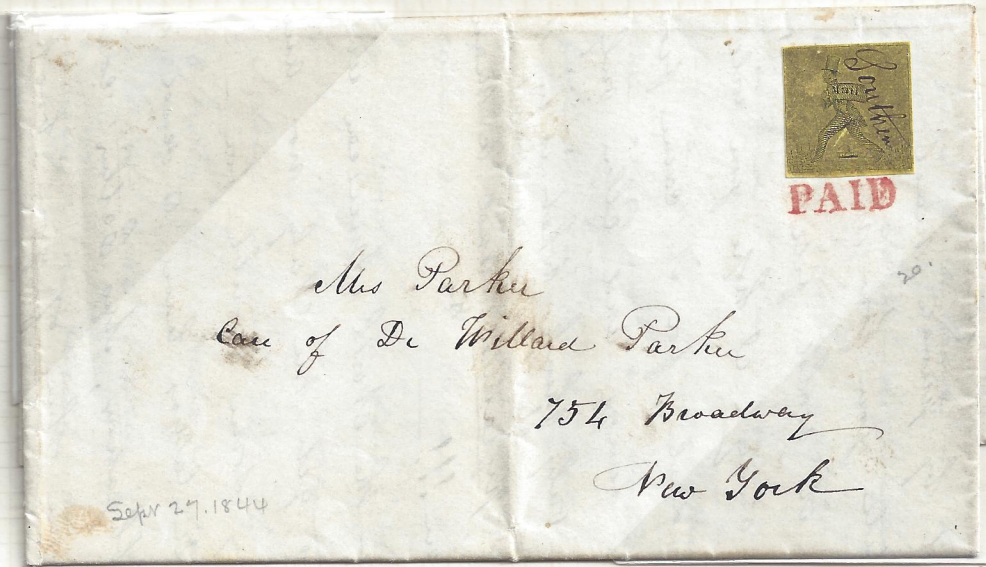 Southern
PAID
20.
Mrs Parker
Care of Dr Willard Parker
754 Broadway
New York
Sept 27. 1844